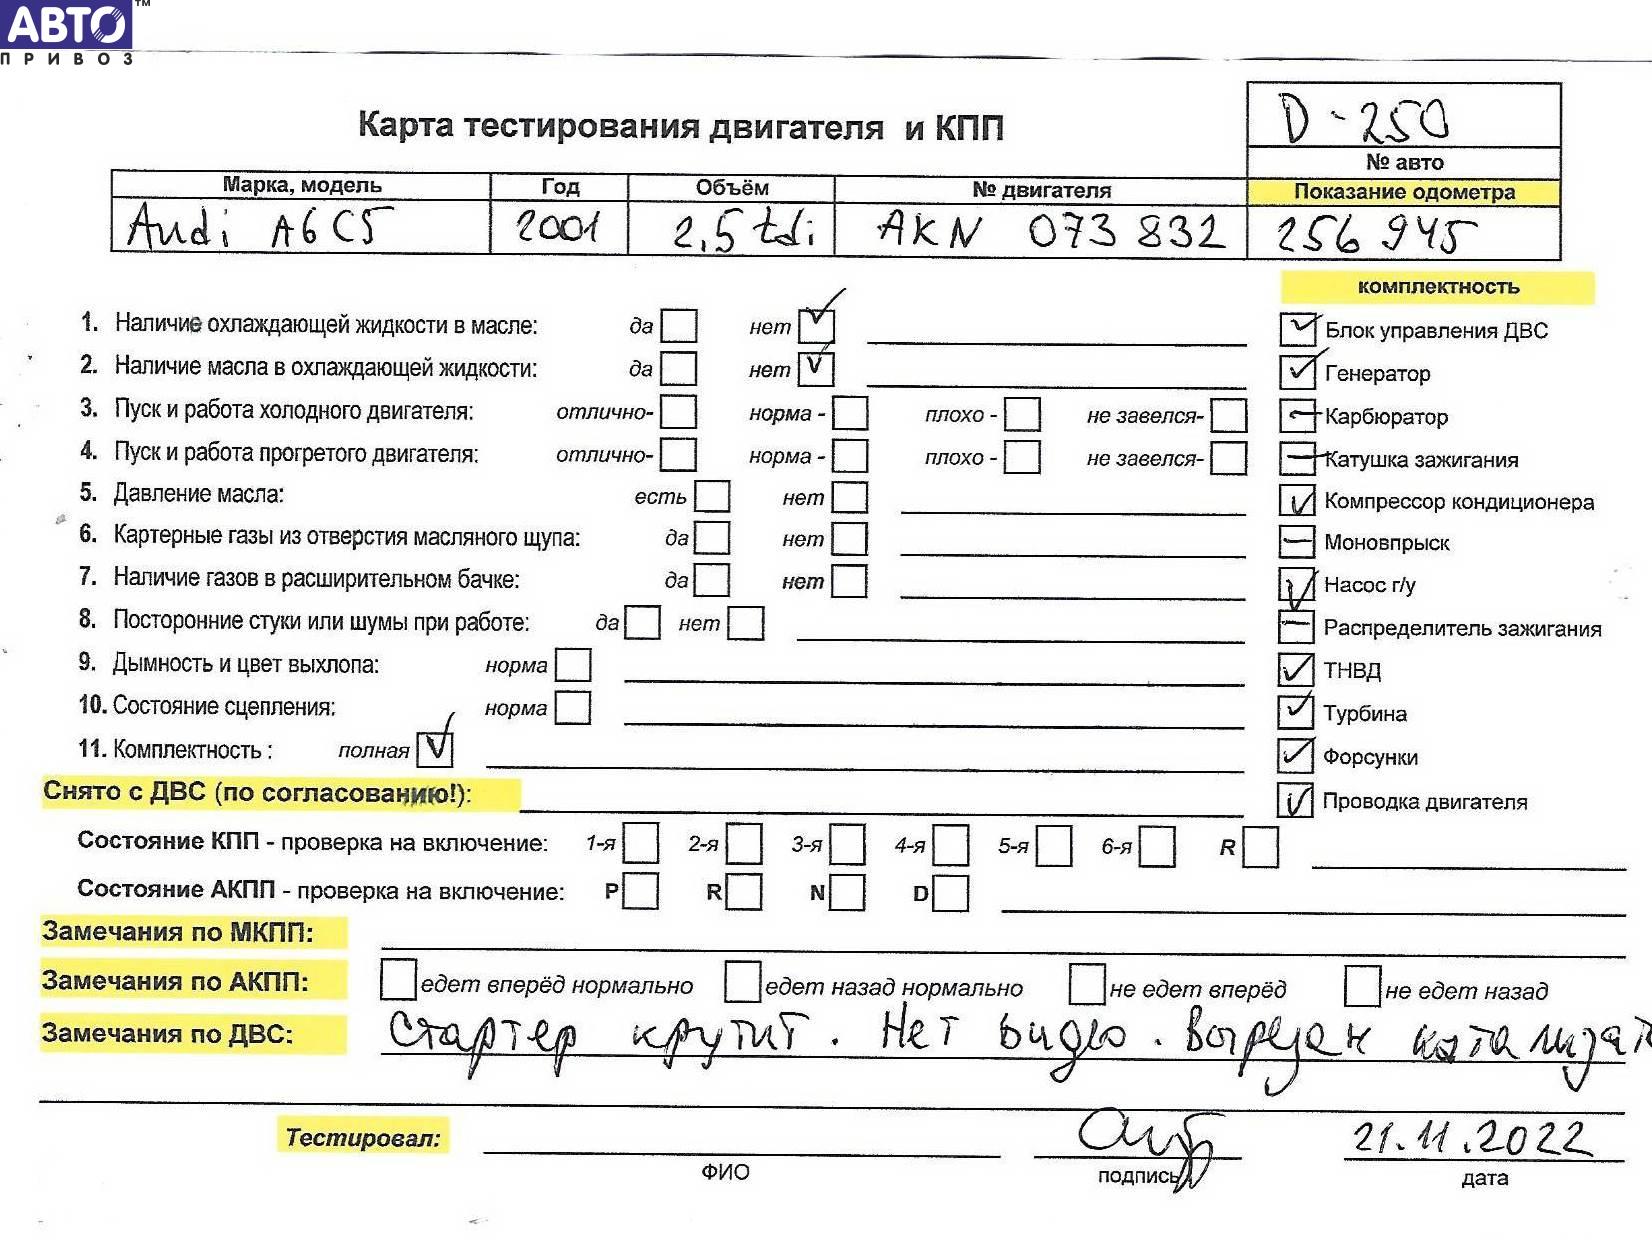 АВТО™
ПРИВОЗ
D-250
Карта тестирования двигателя и КПП
№ авто
Марка, модель Год Объём № двигателя Показание одометра
Audi A6C5 2001 2,5 tdi AKN 073 832 256 945
комплектность
1. Наличие охлаждающей жидкости в масле: да нет
Блок управления ДВС
2. Наличие масла в охлаждающей жидкости: да нет
Генератор
3. Пуск и работа холодного двигателя: отлично- норма - плохо - не завелся-
Карбюратор
4. Пуск и работа прогретого двигателя: отлично- норма - плохо - не завелся-
Катушка зажигания
5. Давление масла: есть нет
Компрессор кондиционера
6. Картерные газы из отверстия масляного щупа: да нет
Моновпрыск
7. Наличие газов в расширительном бачке: да нет
Насос г/у
8. Посторонние стуки или шумы при работе: да нет
Распределитель зажигания
9. Дымность и цвет выхлопа: норма
ТНВД
10. Состояние сцепления: норма
Турбина
11. Комплектность : полная
Форсунки
Снято с ДВС (по согласованию!):
Проводка двигателя
Состояние КПП - проверка на включение: 1-я 2-я 3-я 4-я 5-я 6-я R
Состояние АКПП - проверка на включение: P R N D
Замечания по МКПП:
Замечания по АКПП: едет вперёд нормально едет назад нормально не едет вперёд не едет назад
Замечания по ДВС: Стартер крутит. Нет видео. Вырезан катализат
Тестировал: 21.11.2022
ФИО подпись дата